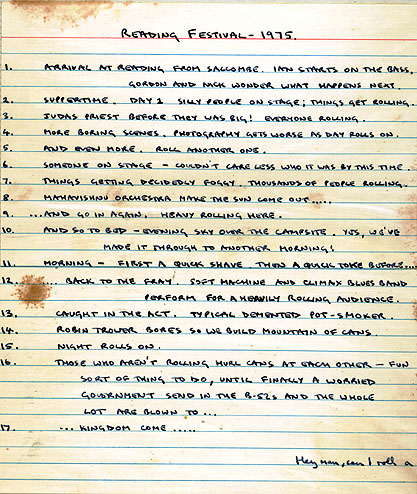 READING FESTIVAL - 1975.
1. ARRIVAL AT READING FROM SACCOMBE. IAN STARTS ON THE BASS,
GORDON AND NICK WONDER WHAT HAPPENS NEXT.
2. SUPPERTIME. DAY 1 SILLY PEOPLE ON STAGE; THINGS GET ROLLING.
3. JUDAS PRIEST BEFORE THEY WAS BIG! EVERYONE ROLLING.
4. MORE BORING SCENES. PHOTOGRAPHY GETS WORSE AS DAY ROLLS ON.
5. AND EVEN MORE. ROLL ANOTHER ONE.
6. SOMEONE ON STAGE - COULDN'T CARE LESS WHO IT WAS BY THIS TIME.
7. THINGS GETTING DECIDEDLY FOGGY. THOUSANDS OF PEOPLE ROLLING.
8. MAHAVISHNU ORCHESTRA MAKE THE SUN COME OUT.....
9. ...AND GO IN AGAIN. HEAVY ROLLING HERE.
10. AND SO TO BED - EVENING SKY OVER THE CAMPSITE. YES, WE'VE
MADE IT THROUGH TO ANOTHER MORNING!
11. MORNING - FIRST A QUICK SHAVE. THEN A QUICK TOKE BEFORE...
12. .... BACK TO THE FRAY. SOFT MACHINE AND CLIMAX BLUES BAND
PERFORM FOR A HEAVILY ROLLING AUDIENCE.
13. CAUGHT IN THE ACT. TYPICAL DEMENTED POT-SMOKER.
14. ROBIN TROWER BORES SO WE BUILD MOUNTAIN OF CANS.
15. NIGHT ROLLS ON.
16. THOSE WHO AREN'T ROLLING HURL CANS AT EACH OTHER - FUN
SORT OF THING TO DO, UNTIL FINALLY A WORRIED
GOVERNMENT SEND IN THE B-52s AND THE WHOLE
LOT ARE BLOWN TO ...
17. ... KINGDOM COME .....
Hey man, can I roll a